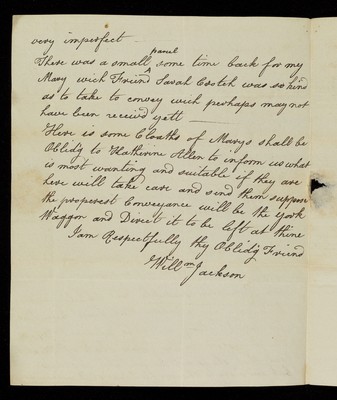 very imperfect —
There was a small parcel some time back for my
Mary wich Friend Sarah was so kind
as to take to convey wich perhaps may not
have been receivd yett —
Here is some Cloaths of Marys shall be
Oblidg to Katherine Allen to inform us what
is most wanting and suitable if they are
here will take care and send them suppose
the properest Conveyance will be the York
Waggon and Direct it to be left at thine
I am Respectfully thy Oblidg'd Friend
Willm Jackson